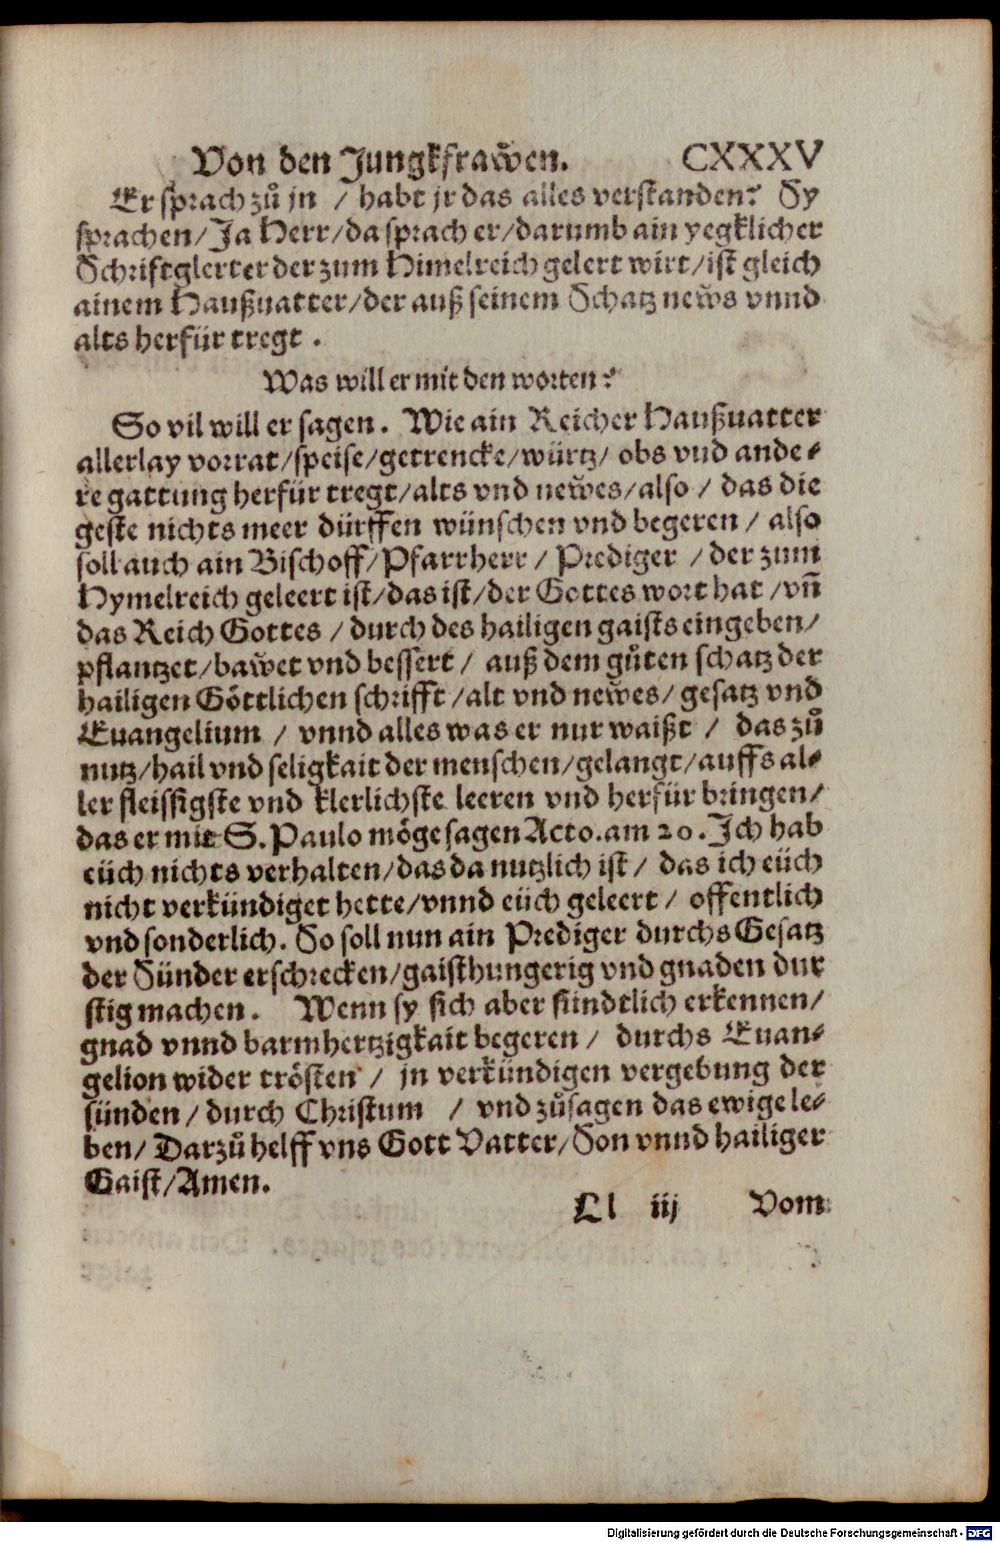 Von den Jungkfraw̃en. CXXXV
Er sprach zů jn / habt jr das alles verstanden? Sy
sprachen/Ja Herr/da sprach er/darumb ain yegklicher
Schriftglerter der zum Himelreich gelert wirt/ist gleich
ainem Haußuatter/der auß seinem Schatz new̃s vnnd
alts herfür tregt .
Was will er mit den worten?
So vil will er sagen. Wie ain Reicher Haußuatter
allerlay vorrat/speise/getrencke/würtz/ obs vnd ande⸗
re gattung herfür tregt/alts vnd new̃es/also / das die
geste nichts meer dürffen wünschen vnd begeren / also
soll auch ain Bischoff/Pfarrherr / Prediger / der zum
Hymelreich geleert ist/das ist/der Gottes wort hat /vñ
das Reich Gottes / durch des hailigen gaists eingeben/
pflantzet/baw̃et vnd bessert / auß dem gůten schatz der
hailigen Göttlichen schrifft /alt vnd new̃es/ gesatz vnd
Euangelium / vnnd alles was er nur waißt / das zů
nutz/hail vnd seligkait der menschen/gelangt/auffs al⸗
ler fleissigste vnd klerlichste leeren vnd herfür bringen/
das er mit S. Paulo möge sagen Acto.am 20. Ich hab
eüch nichts verhalten/das da nutzlich ist / das ich eüch
nicht verkündiget hette/vnnd eüch geleert / offentlich
vnd sonderlich. So soll nun ain Prediger durchs Gesatz
der Sünder erschrecken/gaisthungerig vnd gnaden dur
stig machen. Wenn sy sich aber sündtlich erkennen/
gnad vnnd barmhertzigkait begeren / durchs Euan⸗
gelion wider trösten / jn verkündigen vergebung der
sünden / durch Christum / vnd zůsagen das ewige le⸗
ben/ Darzů helff vns Gott Vatter/Son vnnd hailiger
Gaist/Amen.
Ll iij Vom
Digitalisierung gefördert durch die Deutsche Forschungsgemeinschaft - DFG